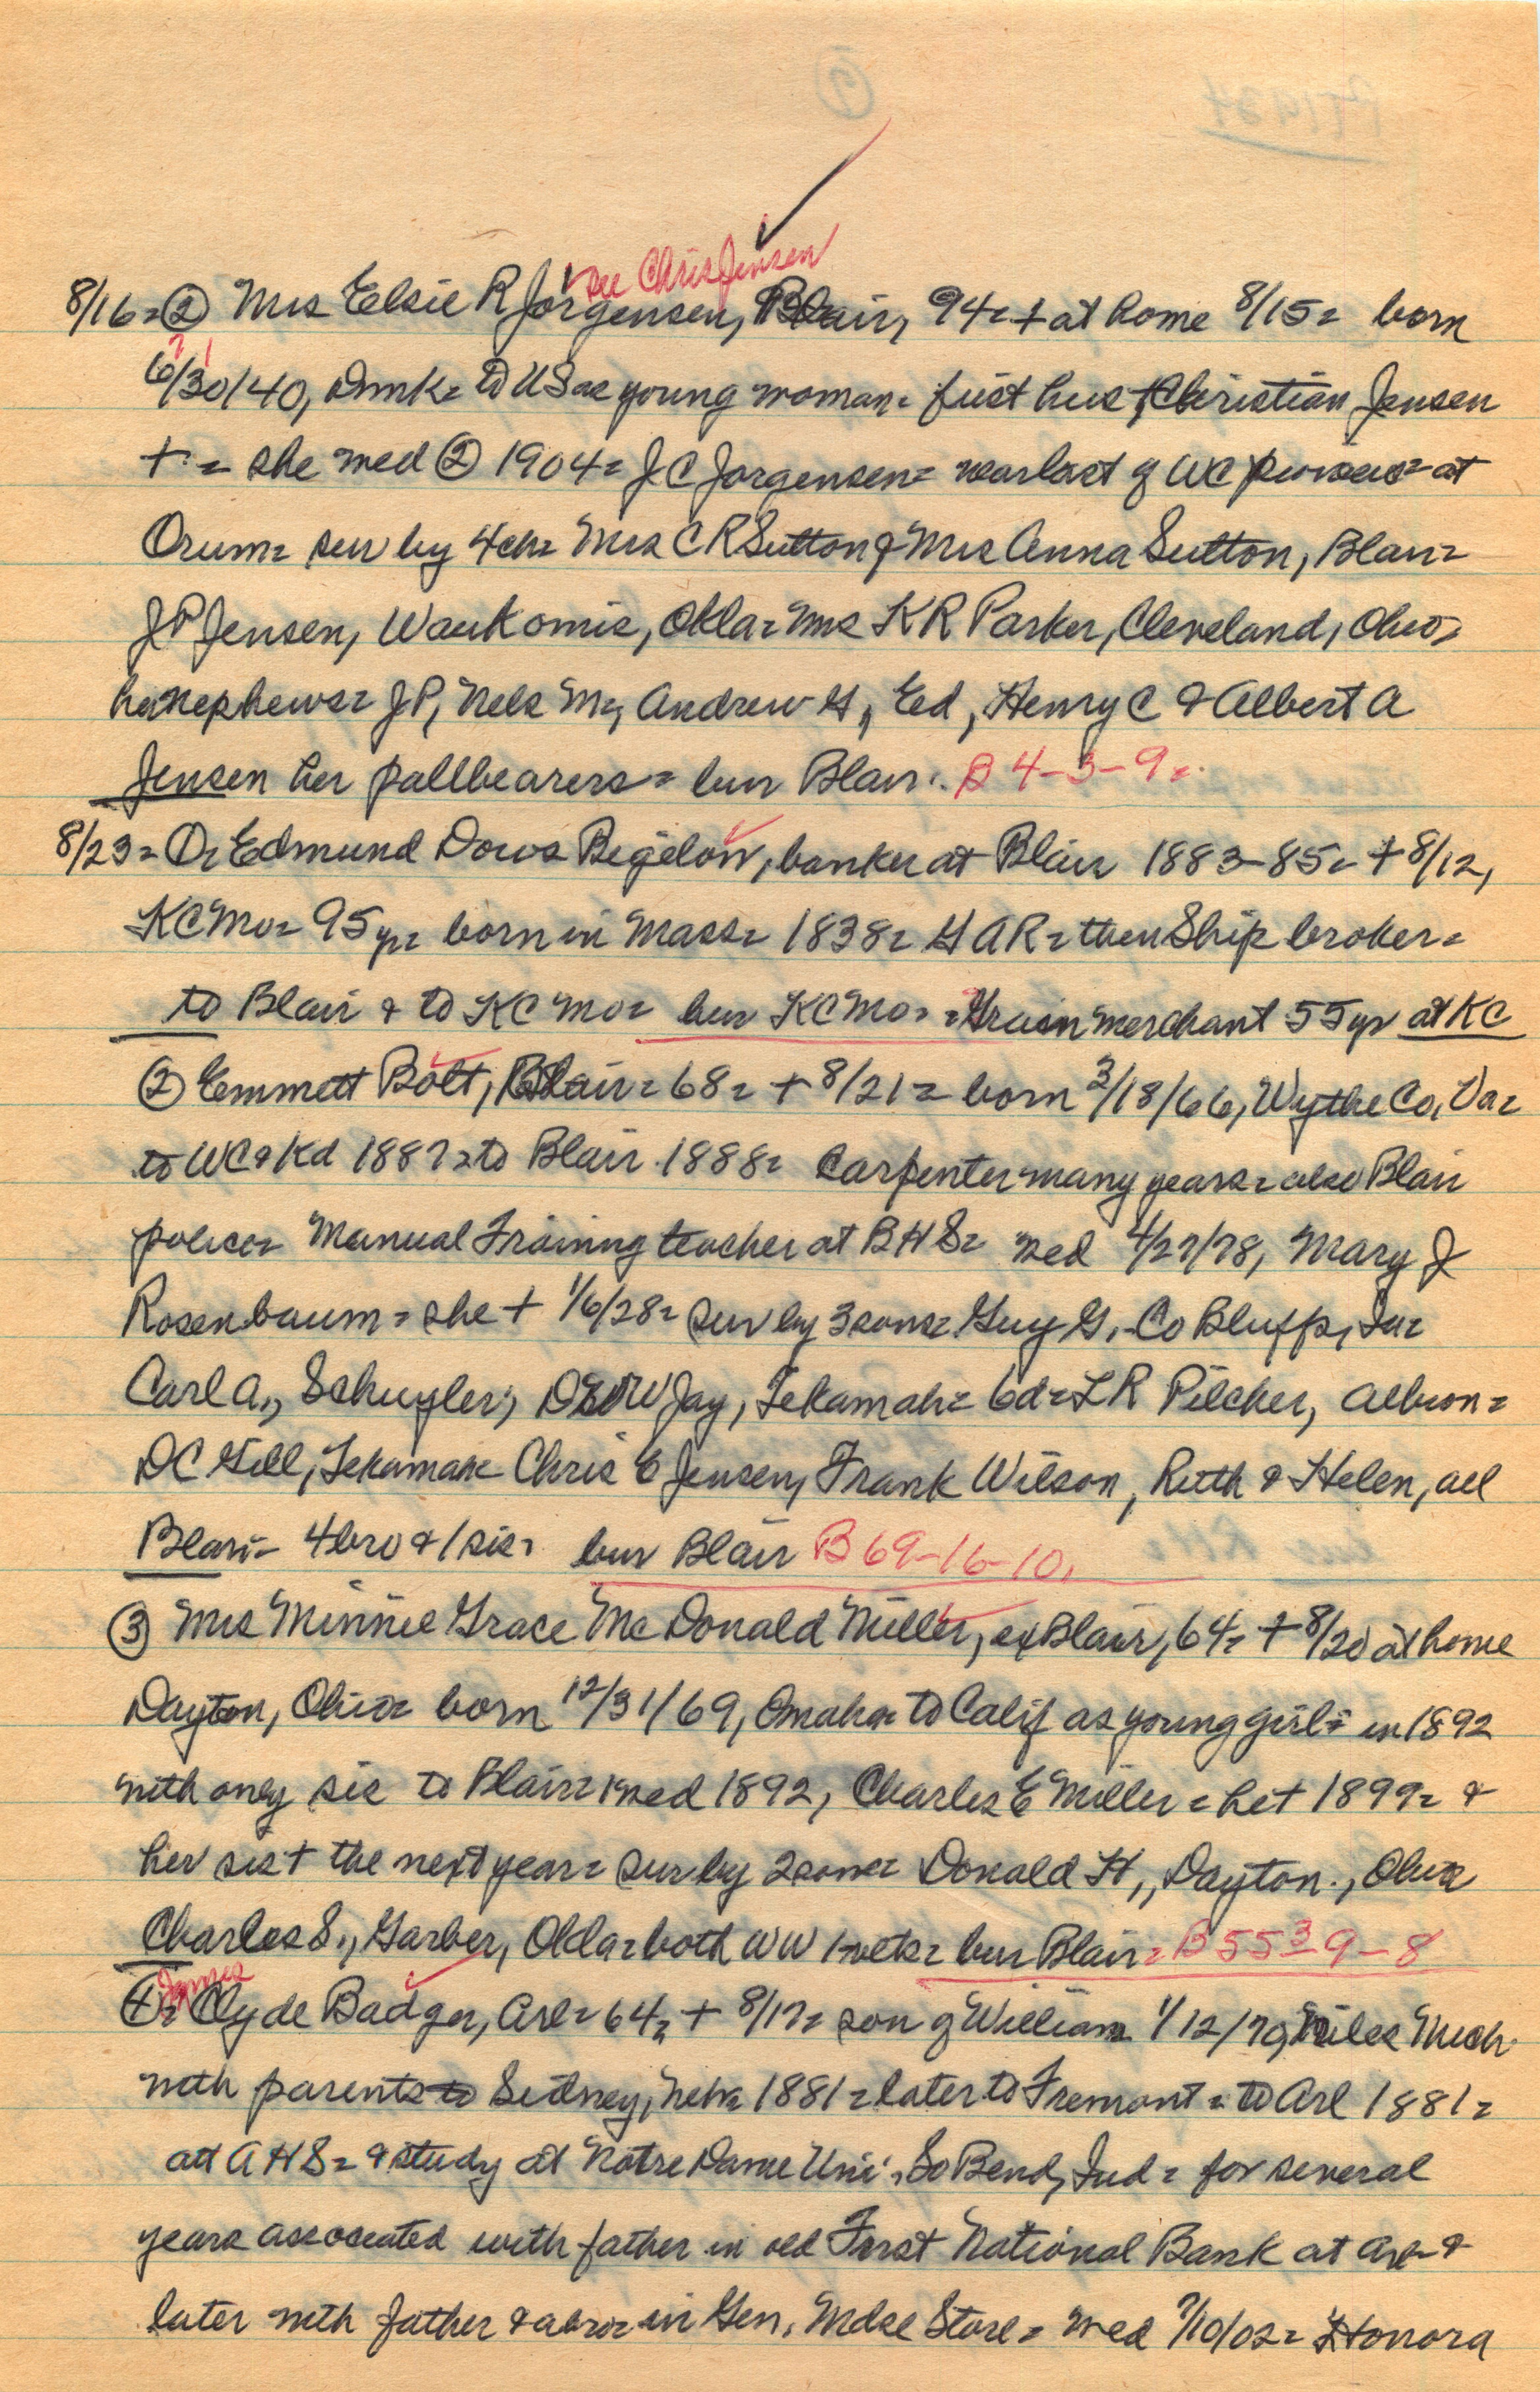 see Chris Jensen
8/16 = ② Mrs Elsie R Jorgensen, Blair, 94 = + at home 8/15 = born
6/30/40, Dnmk = to US as young woman = first hus Christian Jensen
+ = she med ② 1904 = J C Jorgensen = was last of WC at
Orum = sur by 4 ch = Mrs C R Sutton & Mrs Anna Sutton, Blair =
J P Jensen, Waukomis, Okla = Mrs K R Parker, Cleveland, Ohio =
her nephews = J P, Nels M, Andrew G, Ed, Henry C & Albert A
Jensen her pallbearers = bur Blair. B 4-3-9 =
8/23 = Dr Edmund Dows Bigelow, banker at Blair 1883-85 = + 8/12,
KC Mo = 95 yr = born in Mass = 1838 = G A R = then Ship broker =
to Blair & to KC Mo = bur KC Mo = = Grain merchant 55 yr at KC
② Emmett Bolt, Blair = 68 = + 8/21 = born 3/18/66, Wythe Co, Va =
to WC & Kd 1887 = to Blair 1888 = Carpenter many years = also Blair
police = Manual Training teacher at B H S = med 4/27/78, Mary J
Rosenbaum = she + 1/6/28 = sur by 3 sons = Guy G, Co Bluffs, Ia =
Carl A., Schuyler, Jay, Tekamah = 6 d = L R Pilcher, Albion =
D C Gill, Tekamah = Chris E Jensen, Frank Wilson, Ruth & Helen, all
Blair = 4 bro & 1 sis = bur Blair B 69-16-10.
③ Mrs Minnie Grace McDonald Miller, ex Blair, 64 = + 8/20 at home
Dayton, Ohio = born 12/31/69, Omaha = to Calif as young girl = in 1892
with only sis to Blair = med 1892, Charles E Miller = he + 1899 = &
her sis + the next year = sur by 2 sons = Donald H., Dayton., Ohio
Charles S., Garber, Okla = both WW 1 vets = bur Blair = B 55 3-9-8
James
④ = Clyde Badger, Arl = 64 = + 8/17 = son of William 1/12/70, Niles Mich
with parents to Sidney, Neb = 1881 = later to Fremont = to Arl 1881 =
att A H S = & study at Notre Dame Uni, So Bend, Ind = for several
years associated with father in old First National Bank at Arl = &
later with father & a bro = in Gen. Mdse Store = med 7/10/02 = Honora